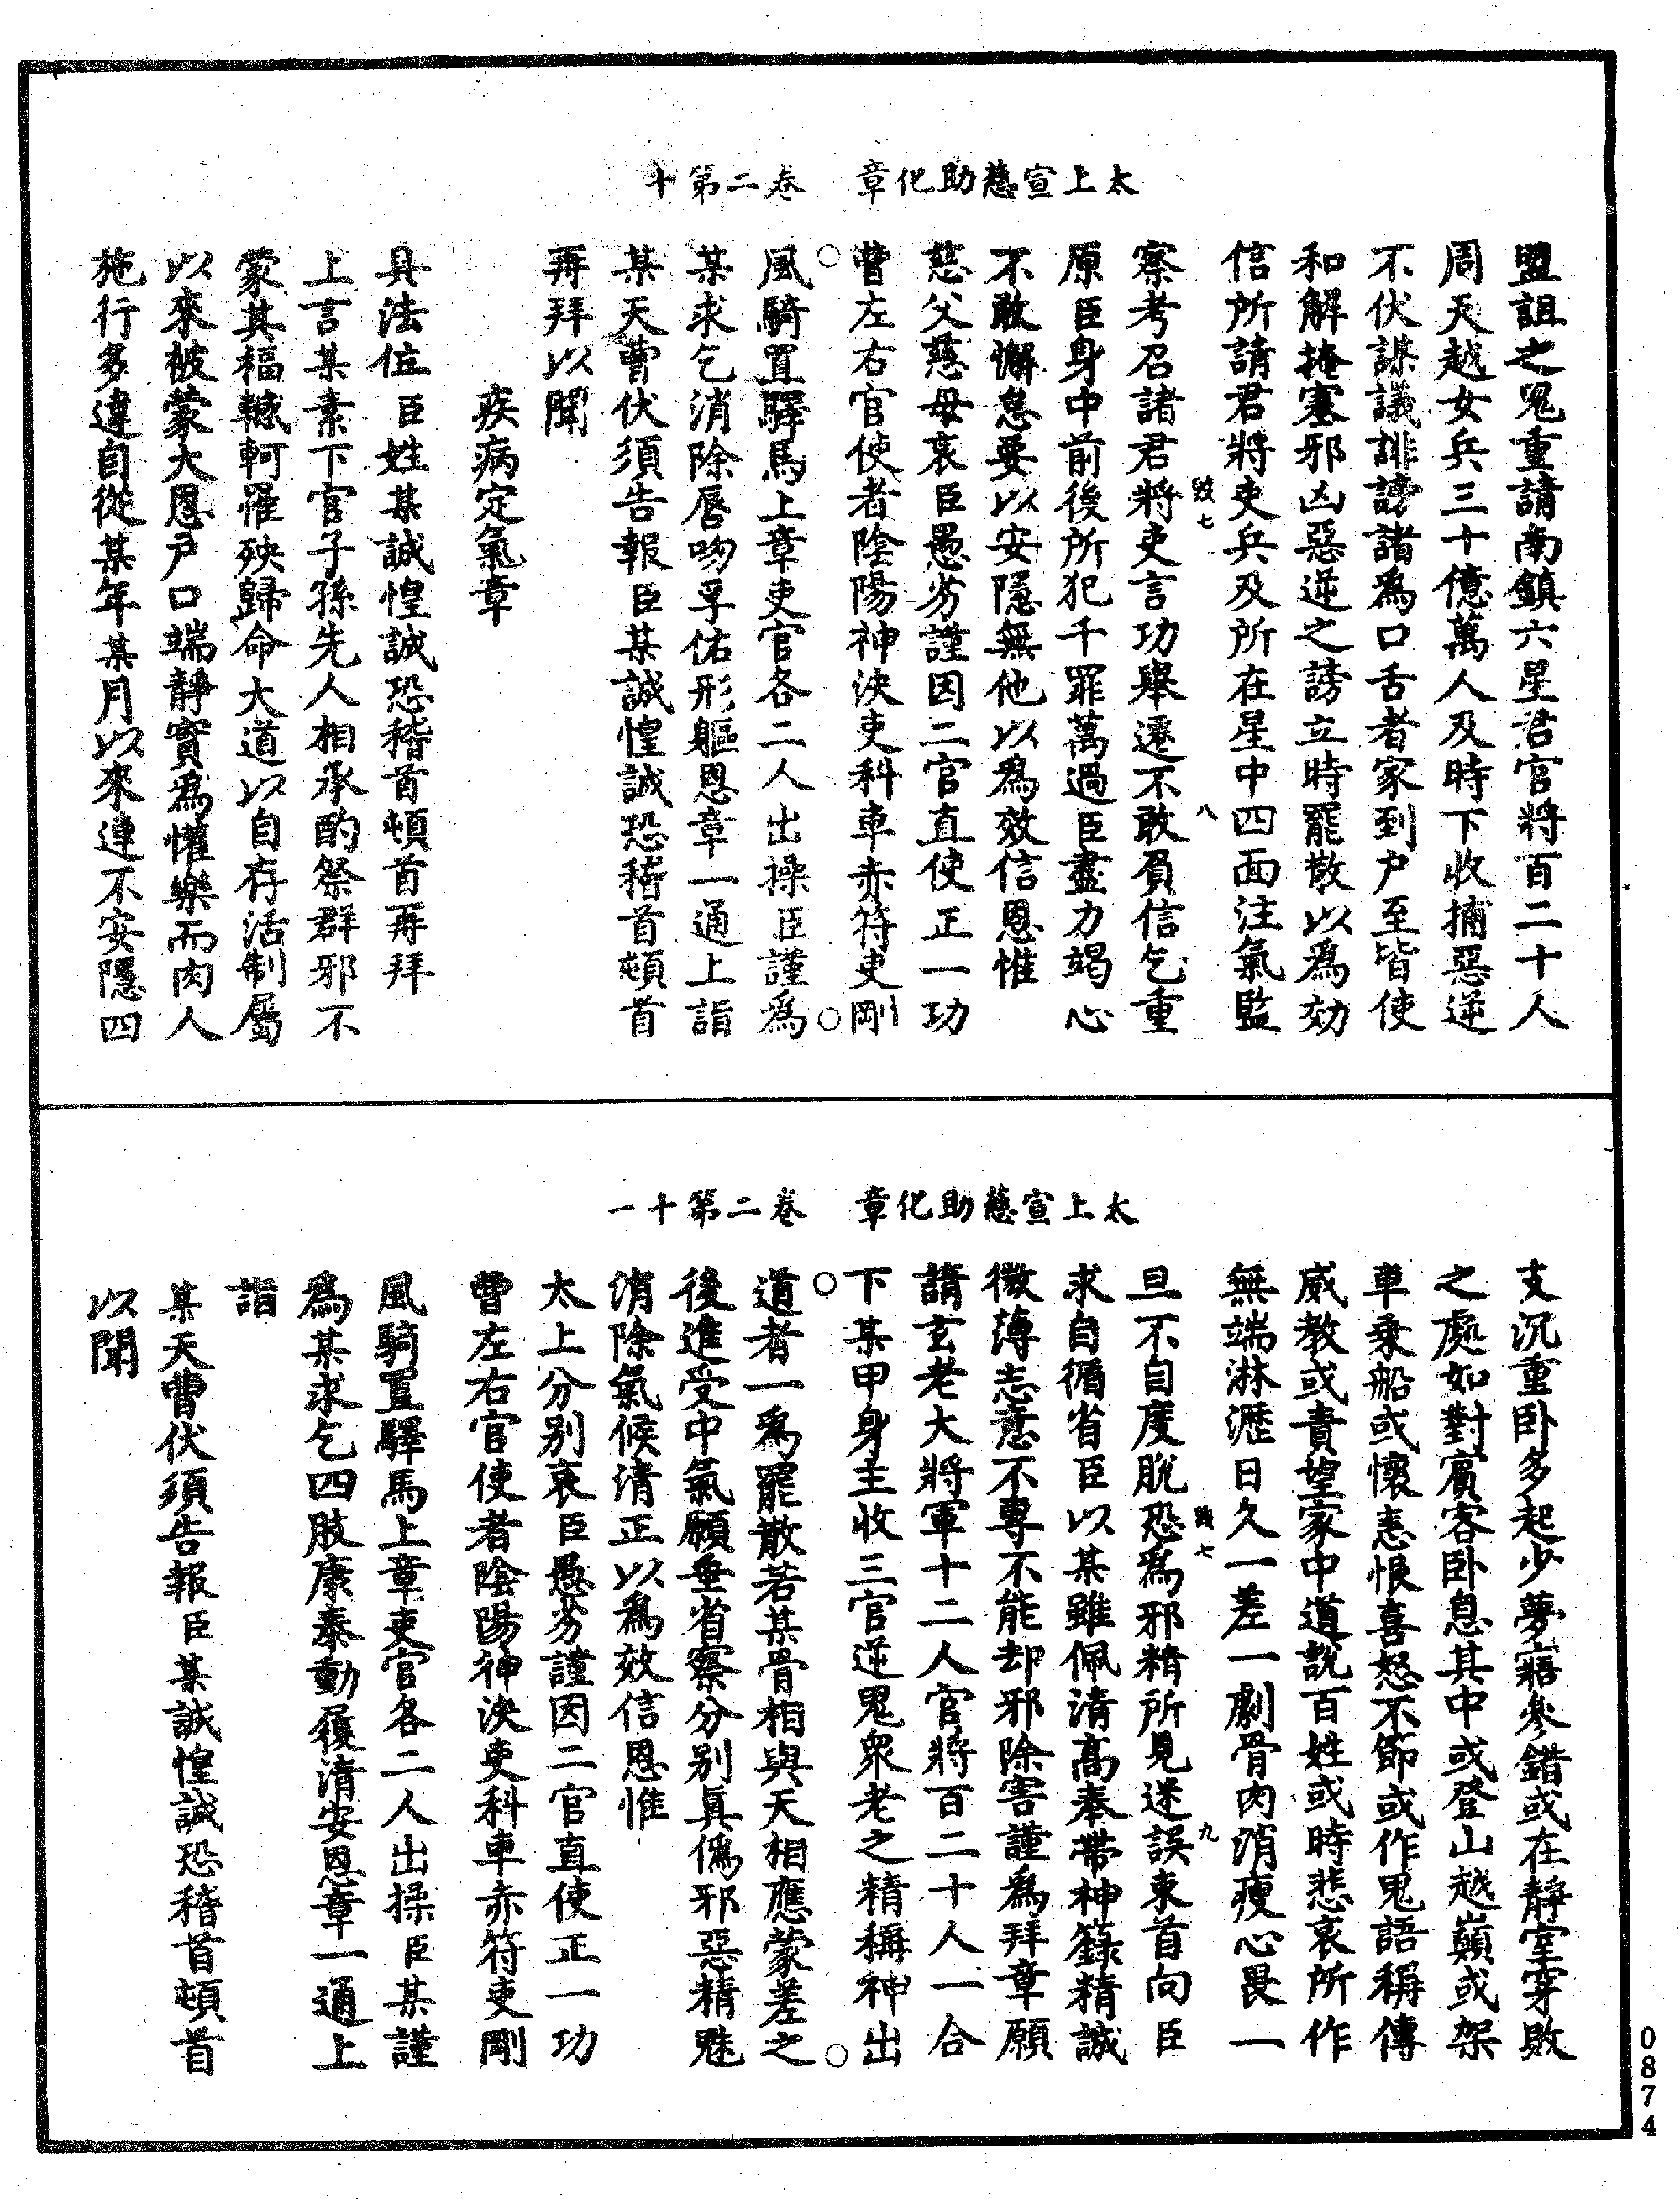 太上宣慈助化章　卷二第十
盟詛之鬼重請南鎮六星君官將百二十人
周天越女兵三十億萬人及時下收捕惡逆
不伏謀議誹謗諸為口舌者家到户至皆使
和解掩塞邪凶惡逆之謗立時罷散以為効
信所請君將吏兵及所在星中四面注氣監
察考召諸君將吏言功舉遷不敢負信乞重
原臣身中前後所犯千罪萬過臣盡力竭心
不敢懈怠要以安隱無他以為效信恩惟
慈父慈母哀臣愚劣謹因二官直使正一功
曹左右官使者陰陽神決吏科車赤符吏剛
風騎置驛馬上章吏官各二人出操臣謹為
某求乞消除唇吻孚佑形軀恩章一通上詣
某天曹伏須告報臣某誠惶誠恐稽首頓首
再拜以聞
疾病定氣章
具法位臣姓某誠惶誠恐稽首頓首再拜
上言某素下官子孫先人相承酌祭群邪不
蒙其福轗軻罹殃歸命大道以自存活制屬
以來被蒙大恩户口端靜實為懽樂而肉人
施行多違自從某年某月以來連不安隱四
太上宣慈助化章　卷二第十一
支沉重卧多起少夢寤參錯或在靜室穿敗
之處如對賓客卧息其中或登山越巔或架
車乘船或懷恚恨喜怒不節或作鬼語稱傳
威教或責望家中道說百姓或時悲哀所作
無端淋瀝日久一差一劇骨肉消瘦心畏一
旦不自度脫恐為邪精所見迷誤束首向臣
求自循省臣以某雖佩清高奉帶神籙精誠
微薄志意不專不能却邪除害謹為拜章願
請玄老大將軍十二人官將百二十人一合
下某甲身主收三官逆鬼眾老之精稱神出
道者一為罷散若某骨相與天相應蒙差之
後進受中氣願垂省察分别真偽邪惡精魅
消除氣候清正以為效信恩惟
太上分别哀臣愚劣謹因二官直使正一功
曹左右官使者陰陽神決吏科車赤符吏剛
風騎置驛馬上章吏官各二人出操臣某謹
為某求乞四肢康泰動履清安恩章一通上
詣
某天曹伏須告報臣某誠惶誠恐稽首頓首
以聞
0874